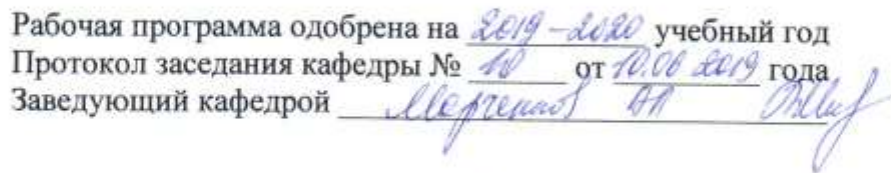 Рабочая программа одобрена на 2019-2020 учебный год
Протокол заседания кафедры № 10 от 10.06 2019 года
Заведующий кафедрой